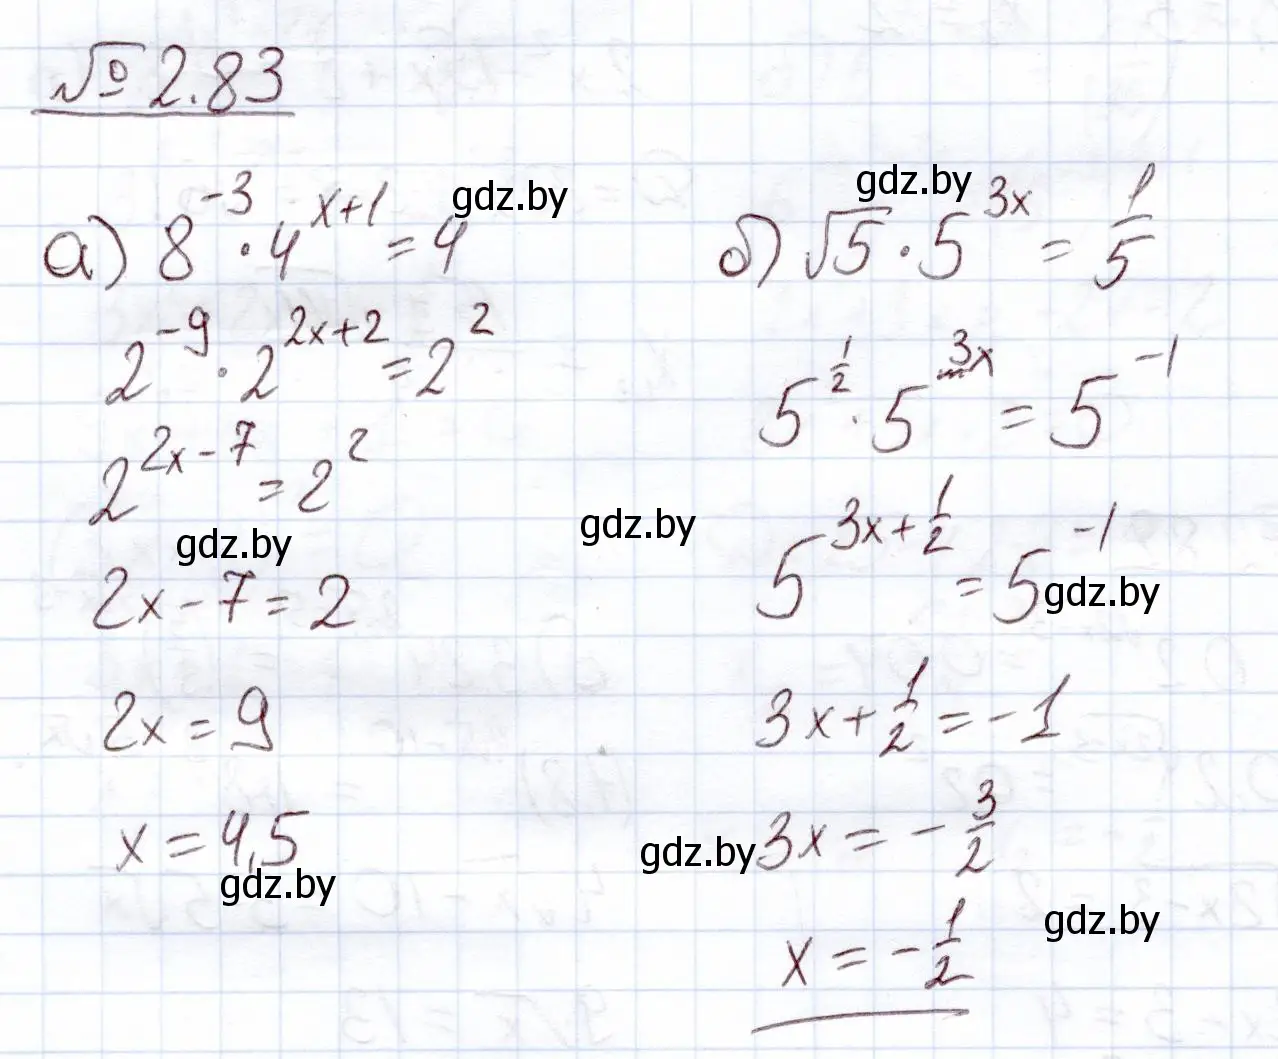 № 2.83
а) 8^{-3} · 4^{x+1} = 4
gdz.by
2^{-9} · 2^{2x+2} = 2^{2}
2^{2x-7} = 2^{2}
gdz.by
2x - 7 = 2
2x = 9
x = 4,5
gdz.by
gdz.by
б) √5 · 5^{3x} = 1/5
gdz.by
5^{1/2} · 5^{3x} = 5^{-1}
gdz.by
5^{3x + 1/2} = 5^{-1}
gdz.by
3x + 1/2 = -1
3x = -3/2
gdz.by
x = -1/2
gdz.by